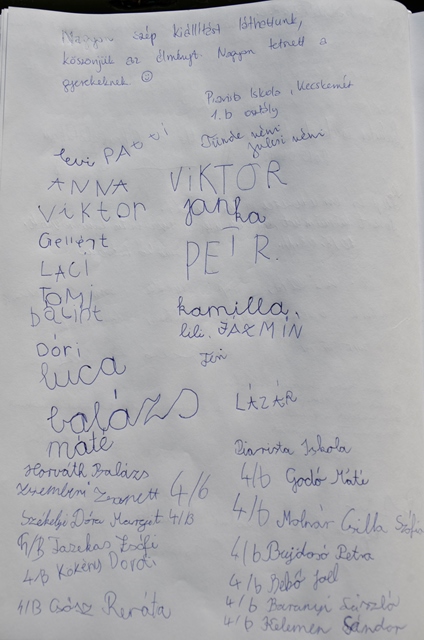 Nagyon szép kiállítást láthattunk,
köszönjük az élményt. Nagyon tetszett a
gyerekeknek ☺
Piarista Iskola, Kecskemét
1. b osztály
Tünde néni
Juliri néni
Levi PATTI
ANNA VIKTOR
Viktor janka
Gellért PETR.
LACI
TOMI kamilla,
bálint lili, JÁZMIN
Dóri
luca
LÁZÁR
balázs
máté Piarista Iskola
Horváth Balázs 4/b Godó Máté
Zsanett 4/b
4/b Molnár Csilla Zsófia
Székelyi Dóra Marget 4/B
4/B Fazekas Zsófi 4/b Bujdosó Petra
4/B Kökény Dordi 4/b Bebő Joel
4/b Baranyi László
4/B Csősz Renáta 4/b Kelemen Sándor